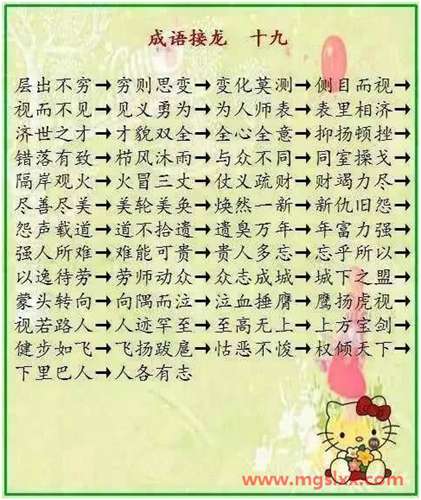 成语接龙 十九
层出不穷→穷则思变→变化莫测→侧目而视→
视而不见→见义勇为→为人师表→表里相济→
济世之才→才貌双全→全心全意→抑扬顿挫→
错落有致→栉风沐雨→与众不同→同室操戈→
隔岸观火→火冒三丈→仗义疏财→财竭力尽→
尽善尽美→美轮美奂→焕然一新→新仇旧怨→
怨声载道→道不拾遗→遗臭万年→年富力强→
强人所难→难能可贵→贵人多忘→忘乎所以→
以逸待劳→劳师动众→众志成城→城下之盟→
蒙头转向→向隅而泣→泣血捶膺→鹰扬虎视→
视若路人→人迹罕至→至高无上→上方宝剑→
健步如飞→飞扬跋扈→怙恶不悛→权倾天下→
下里巴人→人各有志
www.mgslxx.com